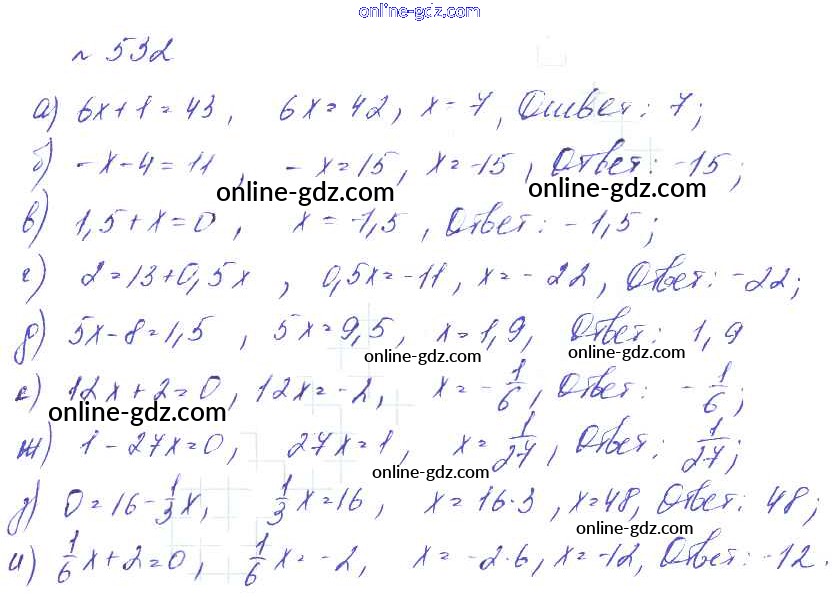 online-gdz.com
№ 532
а) 6x+1=43, 6x=42, x=7, Ответ: 7;
б) -x-4=11, -x=15, x=-15, Ответ: -15;
online-gdz.com online-gdz.com
в) 1,5+x=0, x=-1,5, Ответ: -1,5;
г) 2=13+0,5x, 0,5x=-11, x=-22, Ответ: -22;
д) 5x-8=1,5, 5x=9,5, x=1,9, Ответ: 1,9
online-gdz.com online-gdz.com
е) 12x+2=0, 12x=-2, x=-1/6, Ответ: -1/6;
online-gdz.com
ж) 1-27x=0, 27x=1, x=1/27, Ответ: 1/27;
online-gdz.com
з) 0=16-1/3x, 1/3x=16, x=16·3, x=48, Ответ: 48;
online-gdz.com
и) 1/6x+2=0, 1/6x=-2, x=-2·6, x=-12, Ответ: -12.